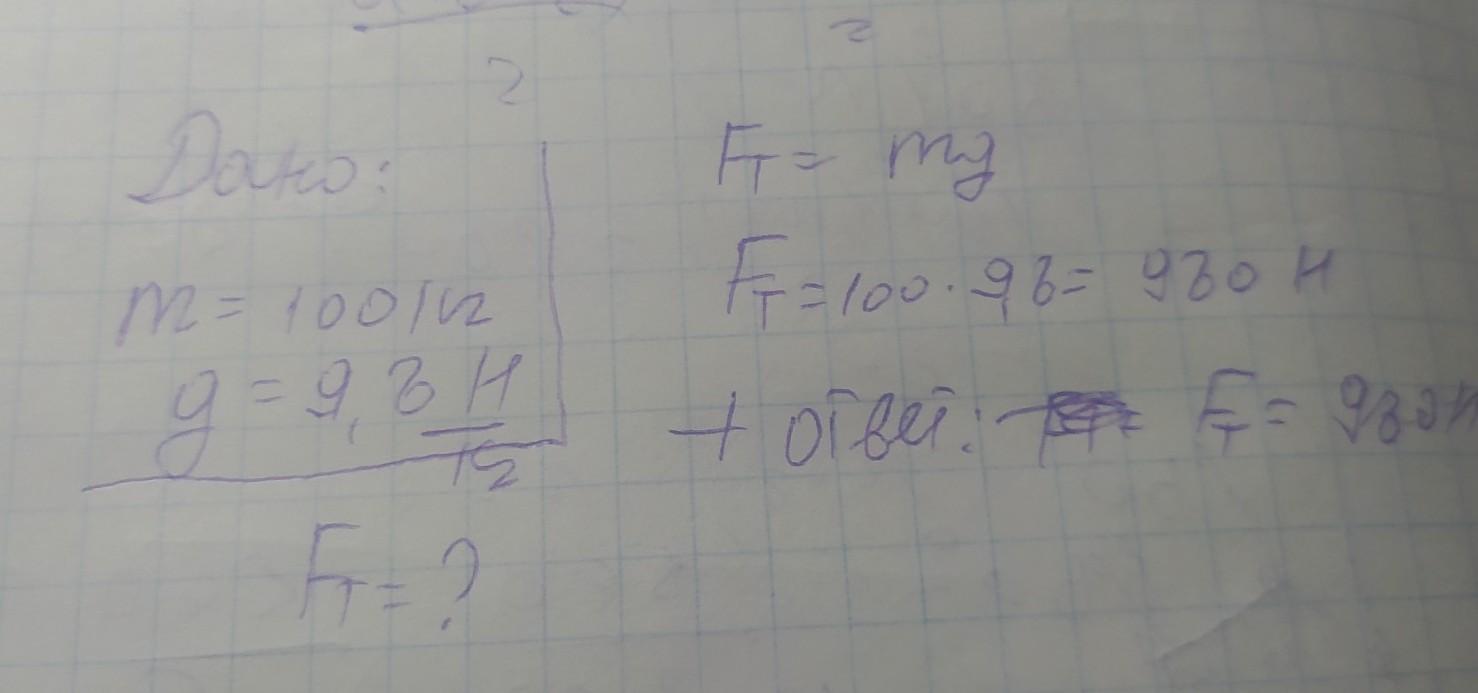 Дано:
m = 100 кг
g = 9,8 Н/кг
Fт = ?
Fт = mg
Fт = 100 · 9,8 = 980 Н
+ ответ: Fт = 980 Н